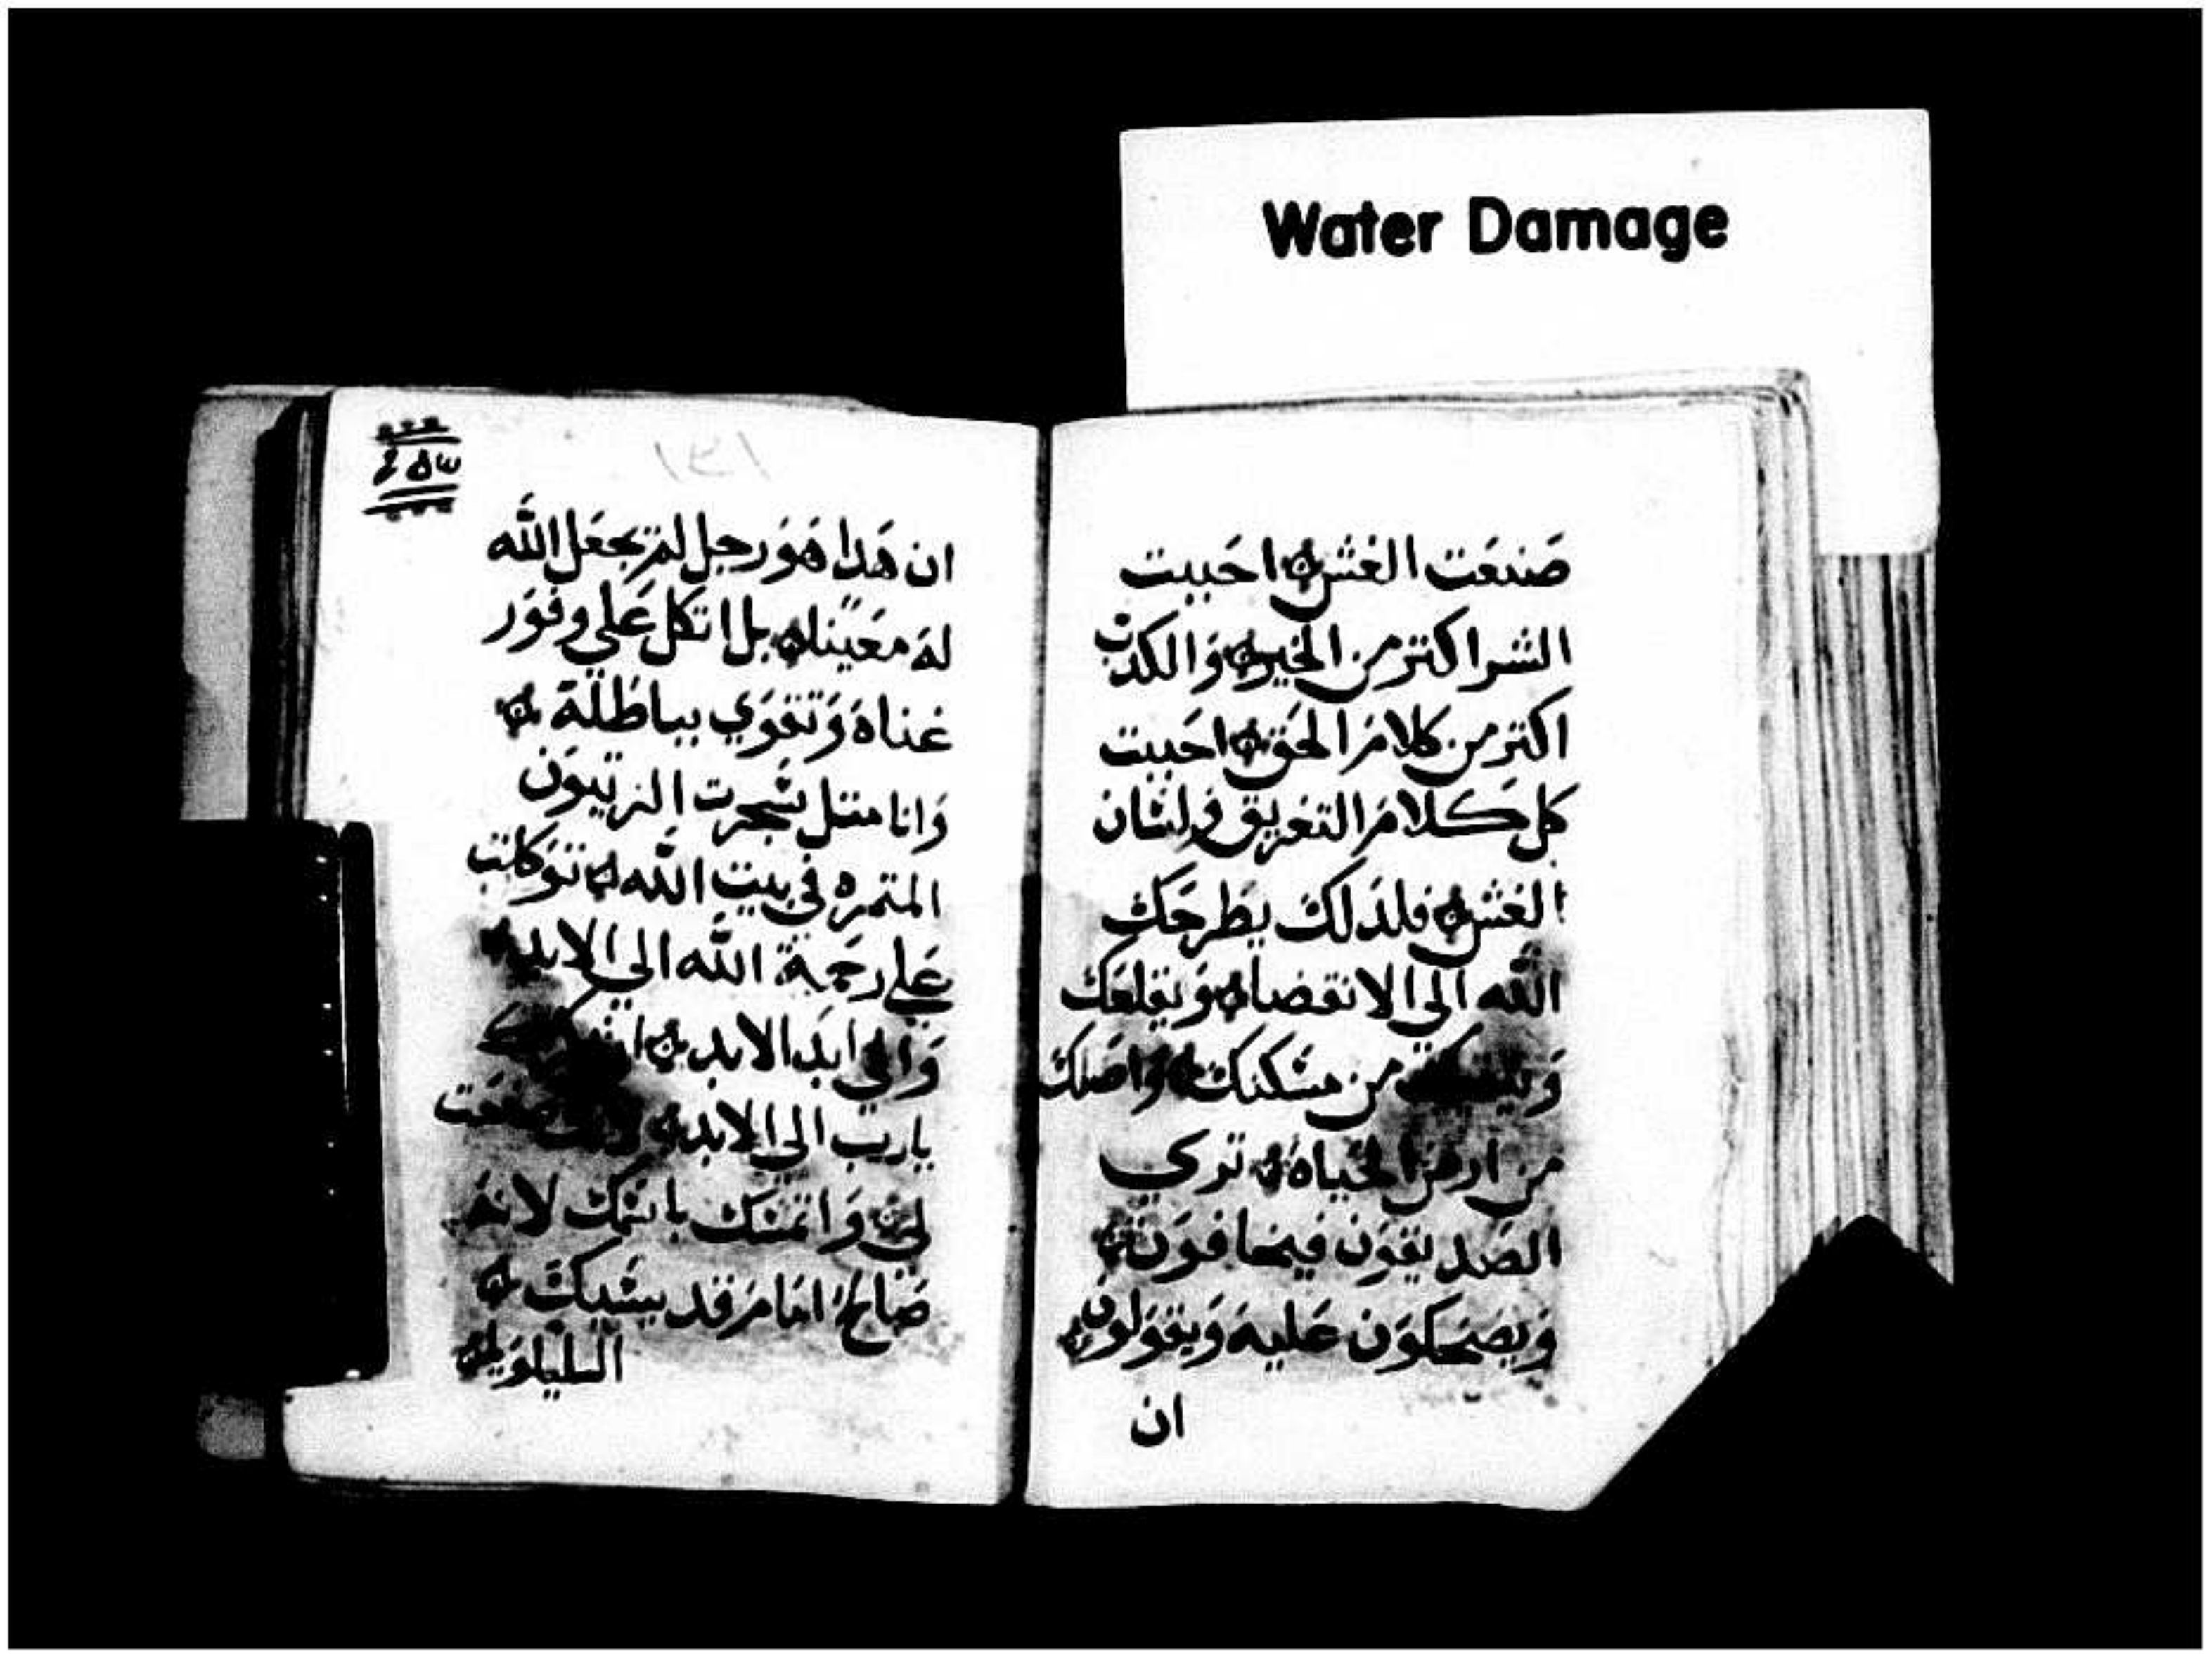 Water Damage
صَنعَت الغش احَببت
الشر اكتر من الخير وَالكدب
اكتر من كلامَ الحَق احَببت
كل كلامَ التغريق ولسَان
الغش فلدَلك يطرحَك
الله الي الانقضا وَيقلعَك
من مسَكنك وَاصَلك
من ارض الحَياة تري
الصَديقوَن فيخافوَن
وَيضحَكوَن عَليهَ وَيقوَلوَن
ان
١٣١
ان هَدا هَوَ رجل لمَ يجعَل الله
لهَ معَينا بل اتكل عَلي وفوَر
غناهَ وَتقوَي بباطلهَ
وَانا متل شَجرت الزيتوَن
المتمره في بيت الله توَكلت
عَلي رحَمة الله الي الابد
وَالي ابدَ الابد
يارب الي الابد صَنعَت
لي وَاتمسَك باسَمك لانهَ
صَالح امَامَ قديسَيك
الليلوَيا